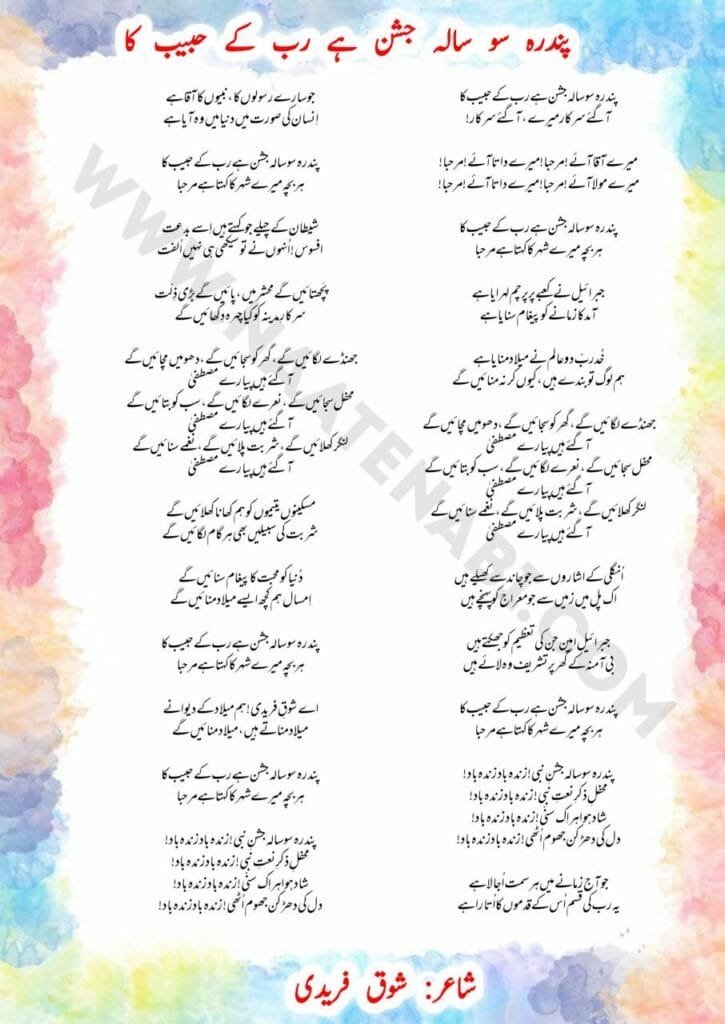 پندرہ سو سالہ جشن ہے رب کے حبیب کا
پندرہ سو سالہ جشن ہے رب کے حبیب کا
آگئے سرکار میرے، آگئے سرکار!
میرے آقا آئے اِمرحبا! میرے داتا آئے اِمرحبا!
میرے مولا آئے اِمرحبا! میرے داتا آئے اِمرحبا!
پندرہ سو سالہ جشن ہے رب کے حبیب کا
ہر بچہ میرے شہر کا کہتا ہے مرحبا
جبرائیل نے کعبے پر پرچم لہرایا ہے
آمد کا زمانے کو پیغام سنایا ہے
خُد ربِّ دو عالم نے میلاد منایا ہے
ہم لوگ تو بندے ہیں، کیوں کر نہ منائیں گے
جھنڈے لگائیں گے، گھر کو سجائیں گے، دھومیں مچائیں گے
آگئے ہیں پیارے مصطفیٰ
محفل سجائیں گے، نعرے لگائیں گے، سب کو بتائیں گے
آگئے ہیں پیارے مصطفیٰ
لنگر کھلائیں گے، شربت پلائیں گے، نغمے سنائیں گے
آگئے ہیں پیارے مصطفیٰ
اُنگلی کے اشاروں سے جو چاند سے کھیلے ہیں
اک پل میں زمیں سے جو معراج کو پہنچے ہیں
جبرائیل امین جن کی تعظیم کو جھکتے ہیں
بی آمنہ کے گھر پر تشریف وہ لائے ہیں
پندرہ سو سالہ جشن ہے رب کے حبیب کا
ہر بچہ میرے شہر کا کہتا ہے مرحبا
پندرہ سو سالہ جشنِ نبی! زندہ باد زندہ باد!
محفلِ ذکرِ نعتِ نبی! زندہ باد زندہ باد!
شاد ہوا ہر اک سنّی! زندہ باد زندہ باد!
دل کی دھڑکن جھوم اُٹھی! زندہ باد زندہ باد!
جو آج زمانے میں ہر سمت اُجالا ہے
یہ رب کی قسم اُس کے قدموں کا اُتارا ہے
جو سارے رسولوں کا، نبیوں کا آقا ہے
اِنسان کی صورت میں دنیا میں وہ آیا ہے
پندرہ سو سالہ جشن ہے رب کے حبیب کا
ہر بچہ میرے شہر کا کہتا ہے مرحبا
شیطان کے چیلے جو کہتے ہیں اِسے بدعت
افسوس! اُنہوں نے تو سیکھی ہی نہیں اُلفت
پچھتائیں گے محشر میں، پائیں گے بڑی ذِلّت
سرکارِ مدینہ کو کیا چہرہ دکھائیں گے
جھنڈے لگائیں گے، گھر کو سجائیں گے، دھومیں مچائیں گے
آگئے ہیں پیارے مصطفیٰ
محفل سجائیں گے، نعرے لگائیں گے، سب کو بتائیں گے
آگئے ہیں پیارے مصطفیٰ
لنگر کھلائیں گے، شربت پلائیں گے، نغمے سنائیں گے
آگئے ہیں پیارے مصطفیٰ
مسکینوں یتیموں کو ہم کھانا کھلائیں گے
شربت کی سبیلیں بھی ہر گام لگائیں گے
دُنیا کو محبت کا پیغام سنائیں گے
اِمسال ہم کچھ ایسے میلاد منائیں گے
پندرہ سو سالہ جشن ہے رب کے حبیب کا
ہر بچہ میرے شہر کا کہتا ہے مرحبا
اے شوقِ فریدی! ہم میلاد کے دیوانے
میلاد مناتے ہیں، میلاد منائیں گے
پندرہ سو سالہ جشن ہے رب کے حبیب کا
ہر بچہ میرے شہر کا کہتا ہے مرحبا
پندرہ سو سالہ جشنِ نبی! زندہ باد زندہ باد!
محفلِ ذکرِ نعتِ نبی! زندہ باد زندہ باد!
شاد ہوا ہر اک سنّی! زندہ باد زندہ باد!
دل کی دھڑکن جھوم اُٹھی! زندہ باد زندہ باد!
شاعر: شوق فریدی
WWW.NAATENART.COM